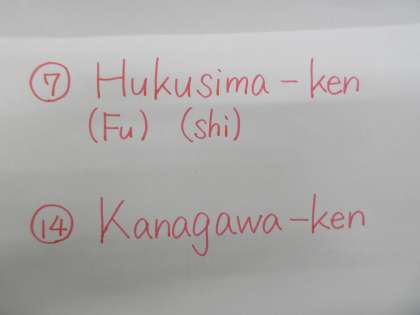 ⑦ Hukusima-ken
(Fu) (shi)
⑭ Kanagawa-ken